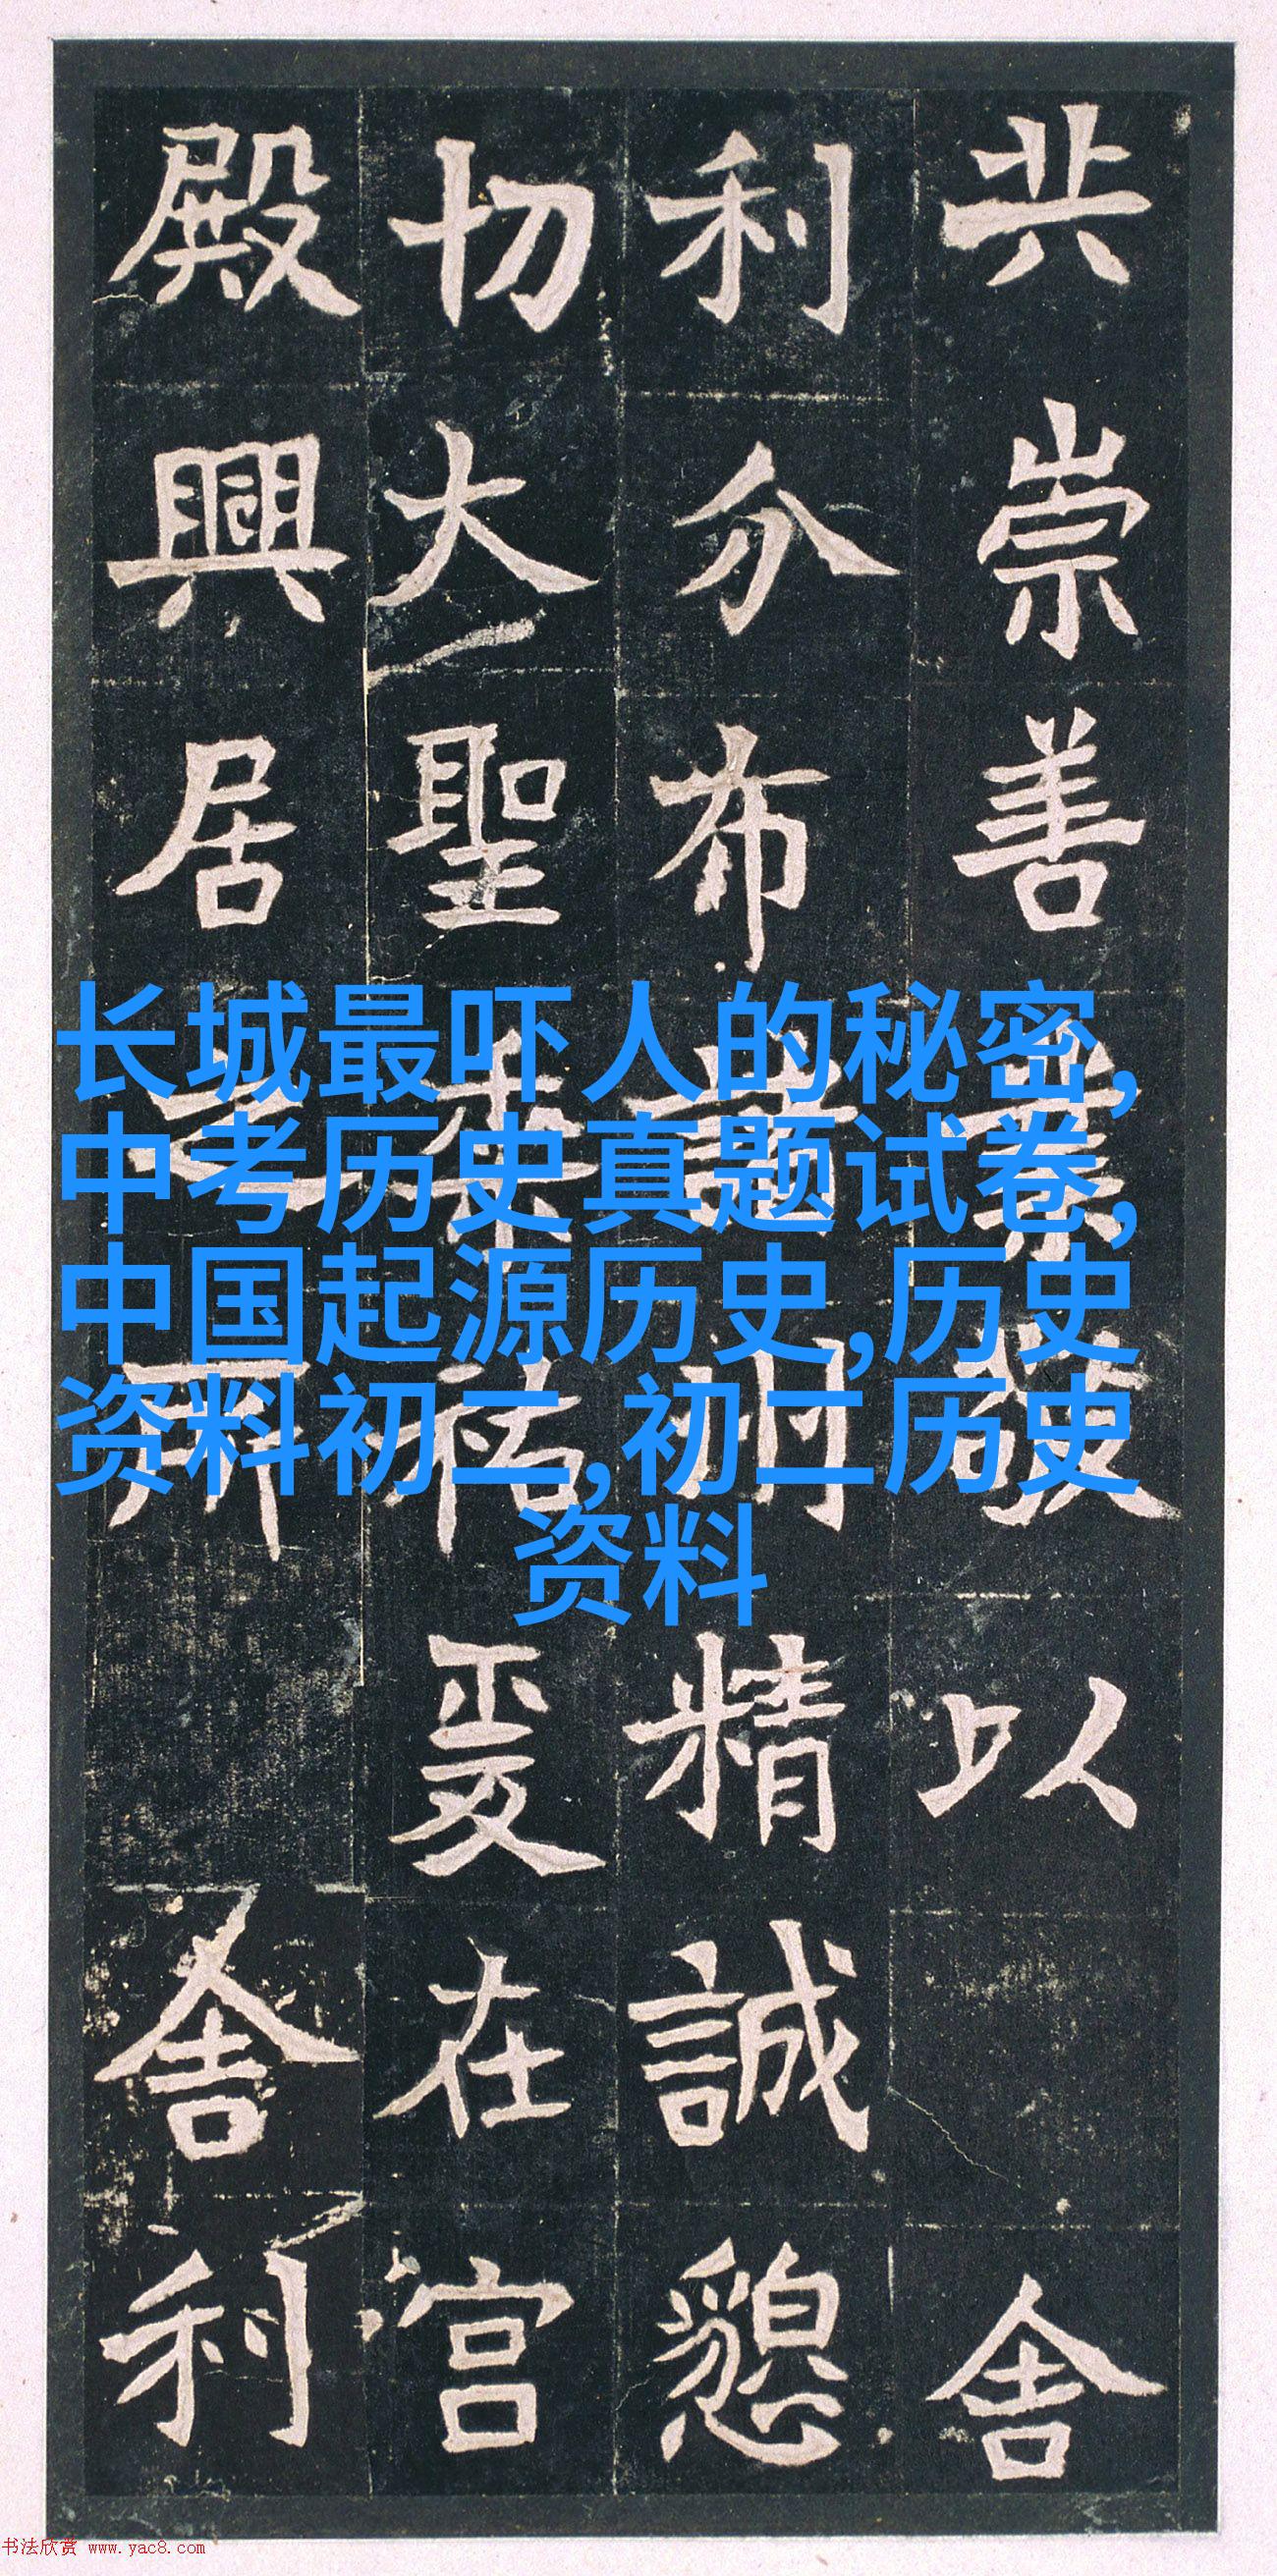 共崇善業敬以舍
利分布諸州精誠懇
切大聖垂祐爰在宮
殿興居之所舍利
长城最吓人的秘密,
中考历史真题试卷,
中国起源历史,历史
资料初二,初二历史
资料
书法欣赏 www.yac8.com